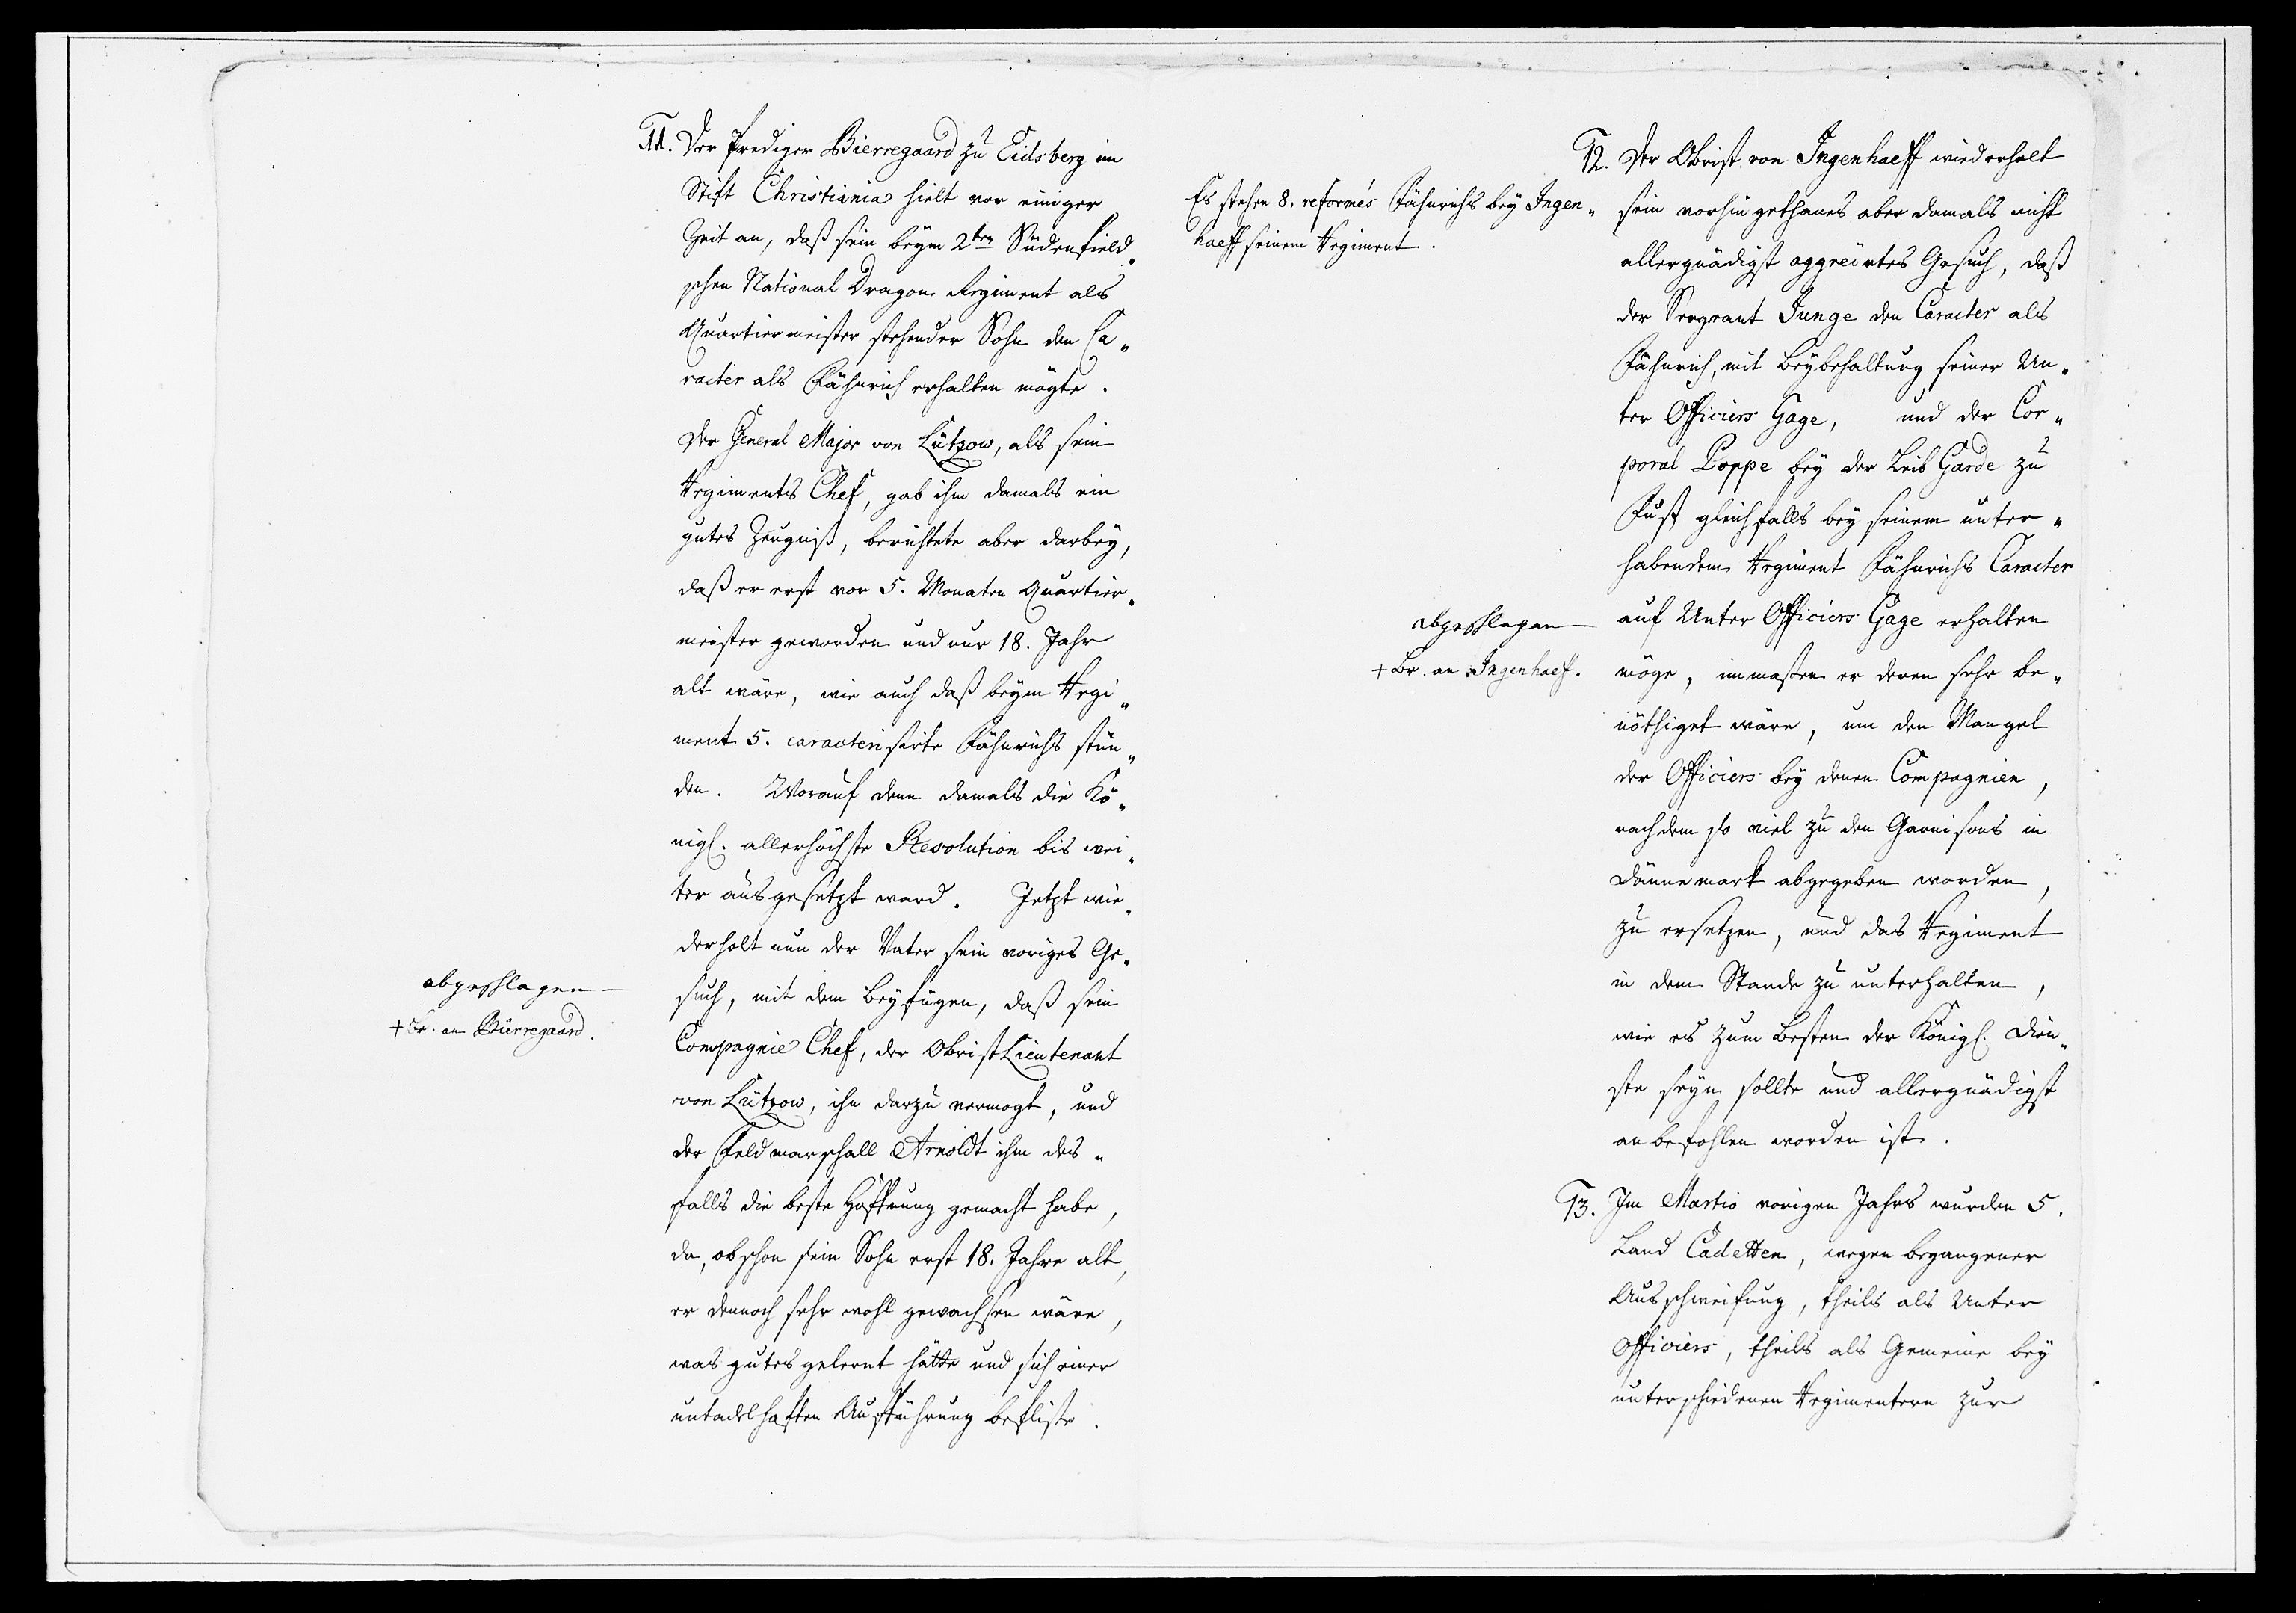 11. Der Prediger Bierregaard zu Eidsberg im
Stift Christiania hielt vor einiger
Zeit an, daß sein beym 2ten Südenfield„
schen National Dragon Regiment als
Quartiermeister stehender Sohn den Ca„
racter als Fähnrich erhalten mögte.
Der General Major von Lützow, als sein
Regiments Chef, gab ihm damals ein
gutes Zeugniß, berichtete aber darbey,
daß er erst vor 5. Monaten Quartier„
meister geworden und nur 18. Jahr
alt wäre, wie auch daß beym Regi„
ment 5. caracterisirte Fähnrichs stün„
den. Worauf denn damals die Kö„
nigl. allerhöchste Resolution bis wei„
ter ausgesetzt ward. Jetzt wie„
derholt nun der Vater sein voriges Ge„
such, mit dem Beyfügen, daß sein
Compagnie Chef, der Obrist Lieutenant
von Lützow, ihn darzu vermogt, und
der Feldmarschall Arnoldt ihm des„
falls die beste Hoffnung gemacht habe,
da, obschon sein Sohn erst 18. Jahre alt,
er dennoch sehr wohl gewachsen wäre,
was gutes gelernt hätte und sich einer
untadelhaften Aufführung befliße.
abgeschlagen —
+ Br. an Bierregaard.
12. Der Obrist von Ingenhaeff wiederholt
sein vorhin gethanes aber damals nicht
allergnädigst aggreirtes Gesuch, daß
der Sergeant Junge den Caracter als
Fähnrich, mit Beybehaltung seiner Un„
ter Officiers Gage, und der Cor„
poral Poppe bey der Leib Garde zu
Fuß gleichfalls bey seinem unter„
habendem Regiment Fähnrichs Caracter
auf Unter Officiers Gage erhalten
möge, immaßen er deren sehr be„
nöthiget wäre, um den Mangel
der Officiers bey denen Compagnien,
nachdem so viel zu den Garnisons in
Dännemark abgegeben worden,
zu ersetzen, und das Regiment
in dem Stande zu unterhalten,
wie es zum Besten der Königl. Dien„
ste seyn sollte und allergnädigst
anbefohlen worden ist.
Es stehen 8. reformés Fähnrichs bey Ingen„
haeff seinem Regiment.
abgeschlagen —
+ Br. an Ingenhaeff.
13. Im Martio vorigen Jahrs wurden 5.
Land Cadetten, wegen begangener
Ausschweifung, theils als Unter
Officiers, theils als Gemeine bey
unterschiedenen Regimentern zur